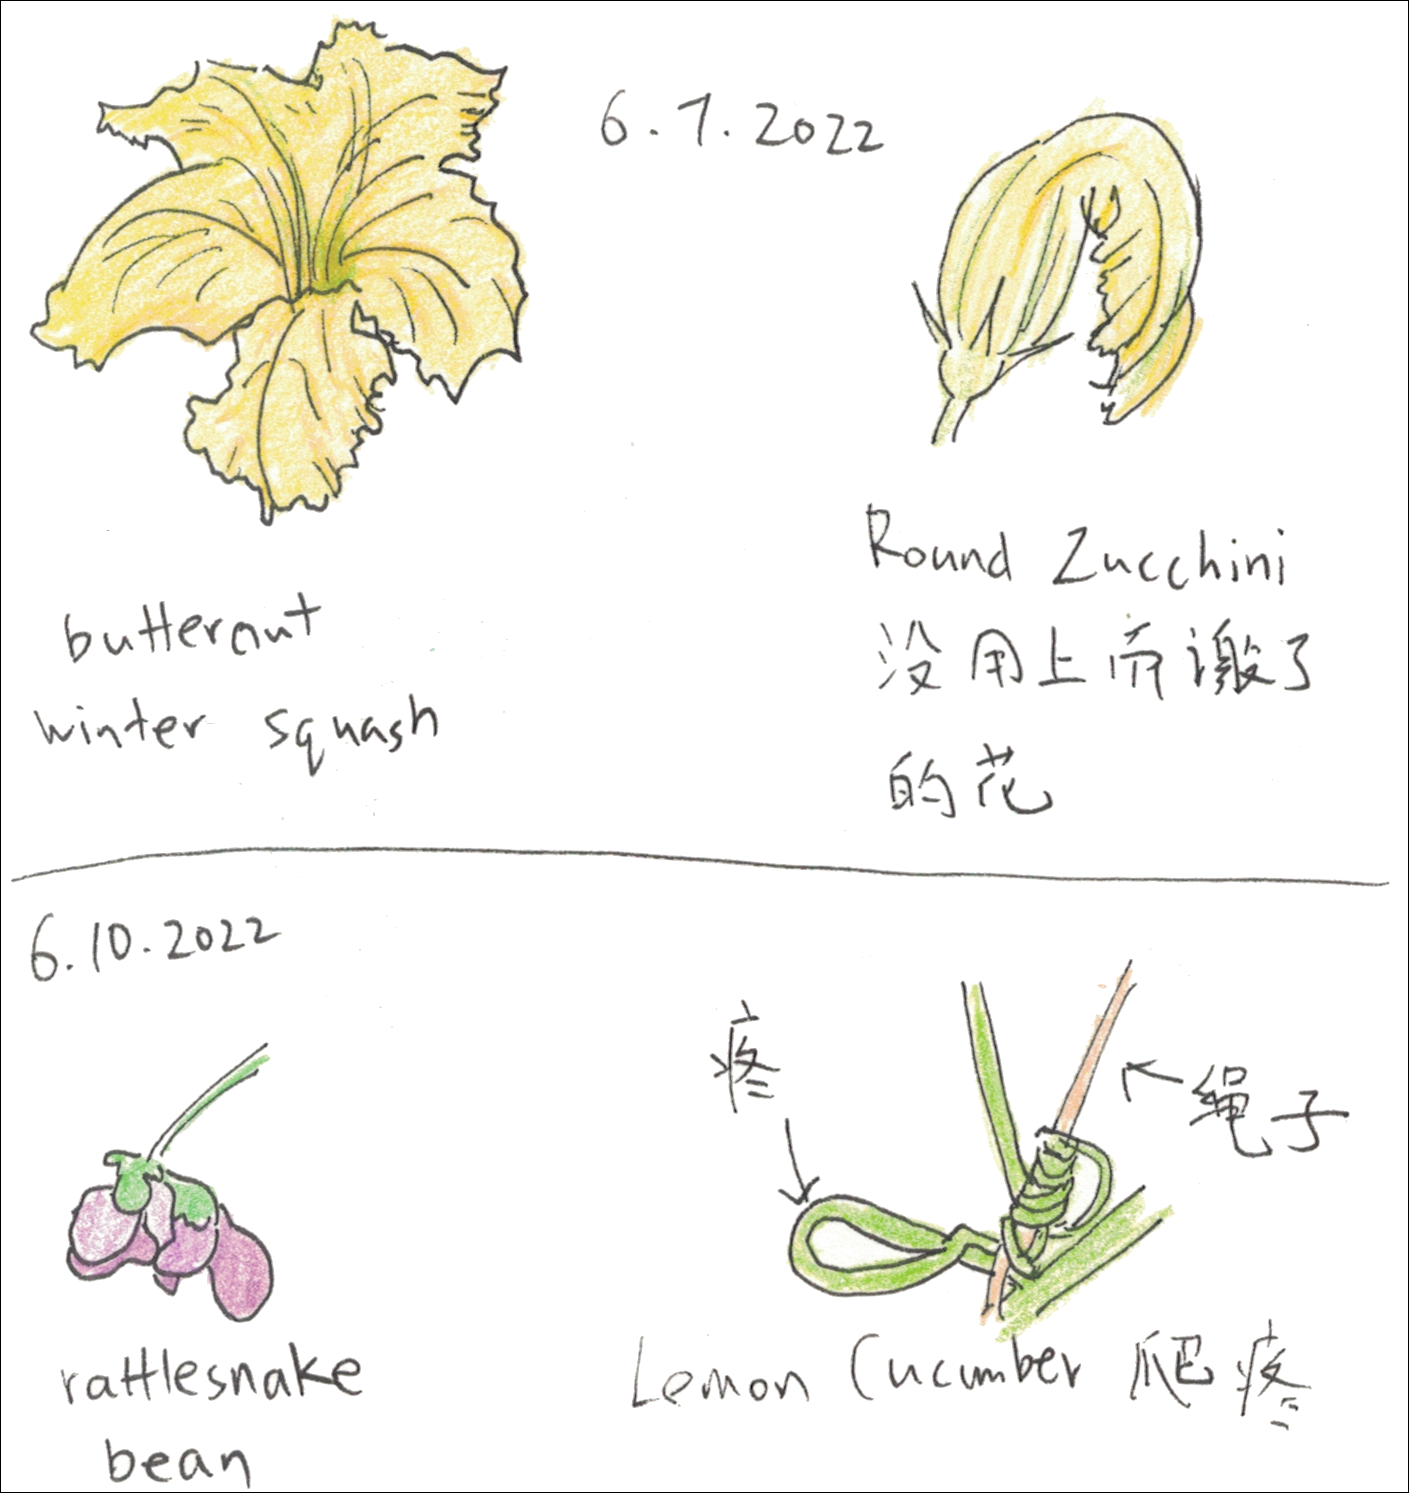 6.7.2022
butternut
winter squash
Round Zucchini
没用上而谢了
的花
6.10.2022
疼
绳子
rattlesnake
bean
Lemon Cucumber 爬疼